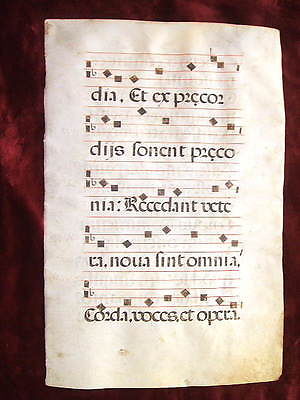 dia. Et ex pręcor
dijs sonent pręco
nia: Recedant vete
ra, nova sint omnia,
Corda, voces, et opera.